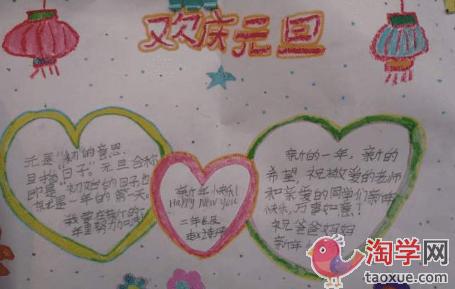 欢庆元旦
元是"初"的意思
旦指"日子"。元旦合称
即是"初始的日子也
就是一年的第一天。
我要在新的一
年里努力
新年快乐!
Happy New year
二年七班
新的一年,新的
希望,祝敬爱的老师
和亲爱的同学们新年
快乐,万事如意!
祝爸爸妈妈
新年
淘学网
taoxue.com